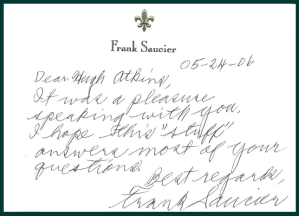 Frank Saucier
05-24-06
Dear Hugh Atkins,
It was a pleasure
speaking with you.
I hope this "stuff"
answers most of your
questions.
Best regards,
Frank Saucier